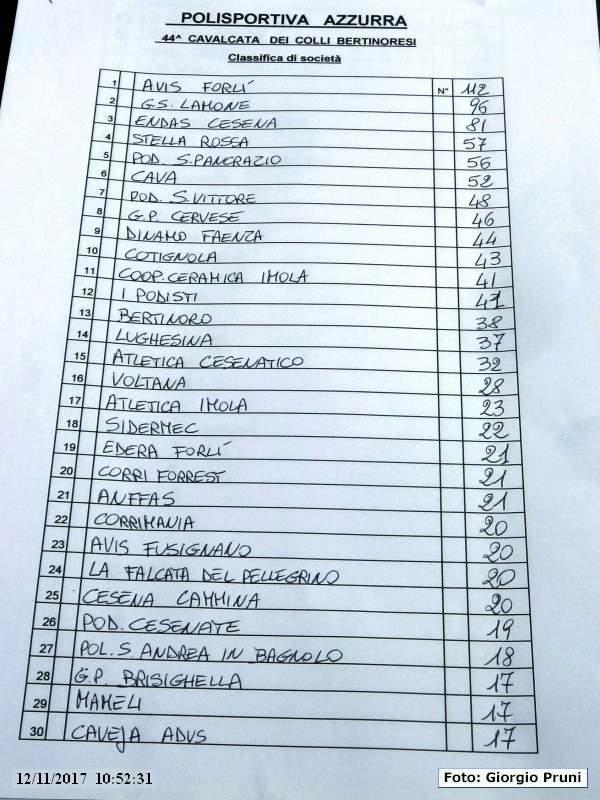 POLISPORTIVA AZZURRA
44^ CAVALCATA DEI COLLI BERTINORESI
Classifica di società
1 AVIS FORLÍ N° 112
2 G.S. LAMONE 96
3 ENDAS CESENA 81
4 STELLA ROSSA 57
5 POD. S.PANCRAZIO 56
6 CAVA 52
7 POD. S.VITTORE 48
8 G.P. CERVESE 46
9 DINAMO FAENZA 44
10 COTIGNOLA 43
11 COOP.CERAMICA IMOLA 41
12 I PODISTI 41
13 BERTINORO 38
14 LUGHESINA 37
15 ATLETICA CESENATICO 32
16 VOLTANA 28
17 ATLETICA IMOLA 23
18 SIDERMEC 22
19 EDERA FORLÍ 21
20 CORRI FORREST 21
21 ANFFAS 21
22 CORRIMANIA 20
23 AVIS FUSIGNANO 20
24 LA FALCATA DEL PELLEGRINO 20
25 CESENA CAMMINA 20
26 POD. CESENATE 19
27 POL. S. ANDREA IN BAGNOLO 18
28 G.P. BRISIGHELLA 17
29 MAMELI 17
30 CAVEJA ADVS 17
12/11/2017 10:52:31
Foto: Giorgio Pruni